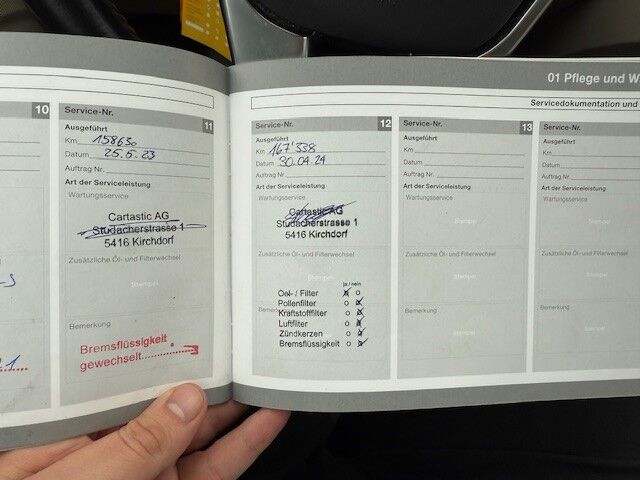 01 Pflege und W
Servicedokumentation und
10
Service-Nr. 11
Ausgeführt
Km 158630
Datum 25.5.23
Auftrag Nr.
Art der Serviceleistung
Wartungsservice
Cartastic AG
Studacherstrasse 1
5416 Kirchdorf
Zusätzliche Öl- und Filterwechsel
Stempel
Bemerkung
Bremsflüssigkeit
gewechselt
Service-Nr. 12
Ausgeführt
Km 167'338
Datum 30.04.24
Auftrag Nr.
Art der Serviceleistung
Wartungsservice
Cartastic AG
Studacherstrasse 1
5416 Kirchdorf
Zusätzliche Öl- und Filterwechsel
Stempel
ja / nein
Oel- / Filter
Pollenfilter
Kraftstofffilter
Luftfilter
Zündkerzen
Bremsflüssigkeit
Service-Nr. 13
Ausgeführt
Km
Datum
Auftrag Nr.
Art der Serviceleistung
Wartungsservice
Stempel
Zusätzliche Öl- und Filterwechsel
Stempel
Bemerkung
Stempel
Service-Nr.
Ausgeführt
Km
Datum
Auftrag Nr.
Art der Serviceleistung
Wartungsservice
Stempel
Zusätzliche Öl- und Filterwechsel
Bemerkung